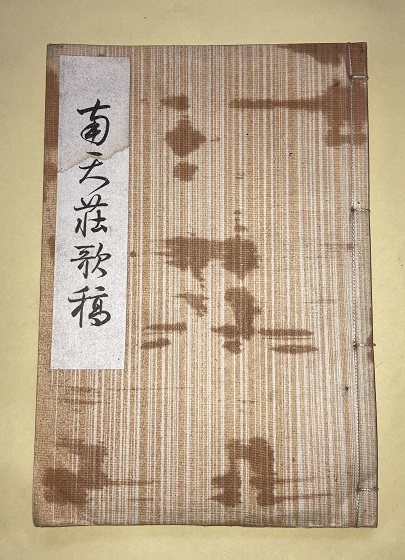 南天荘歌稿